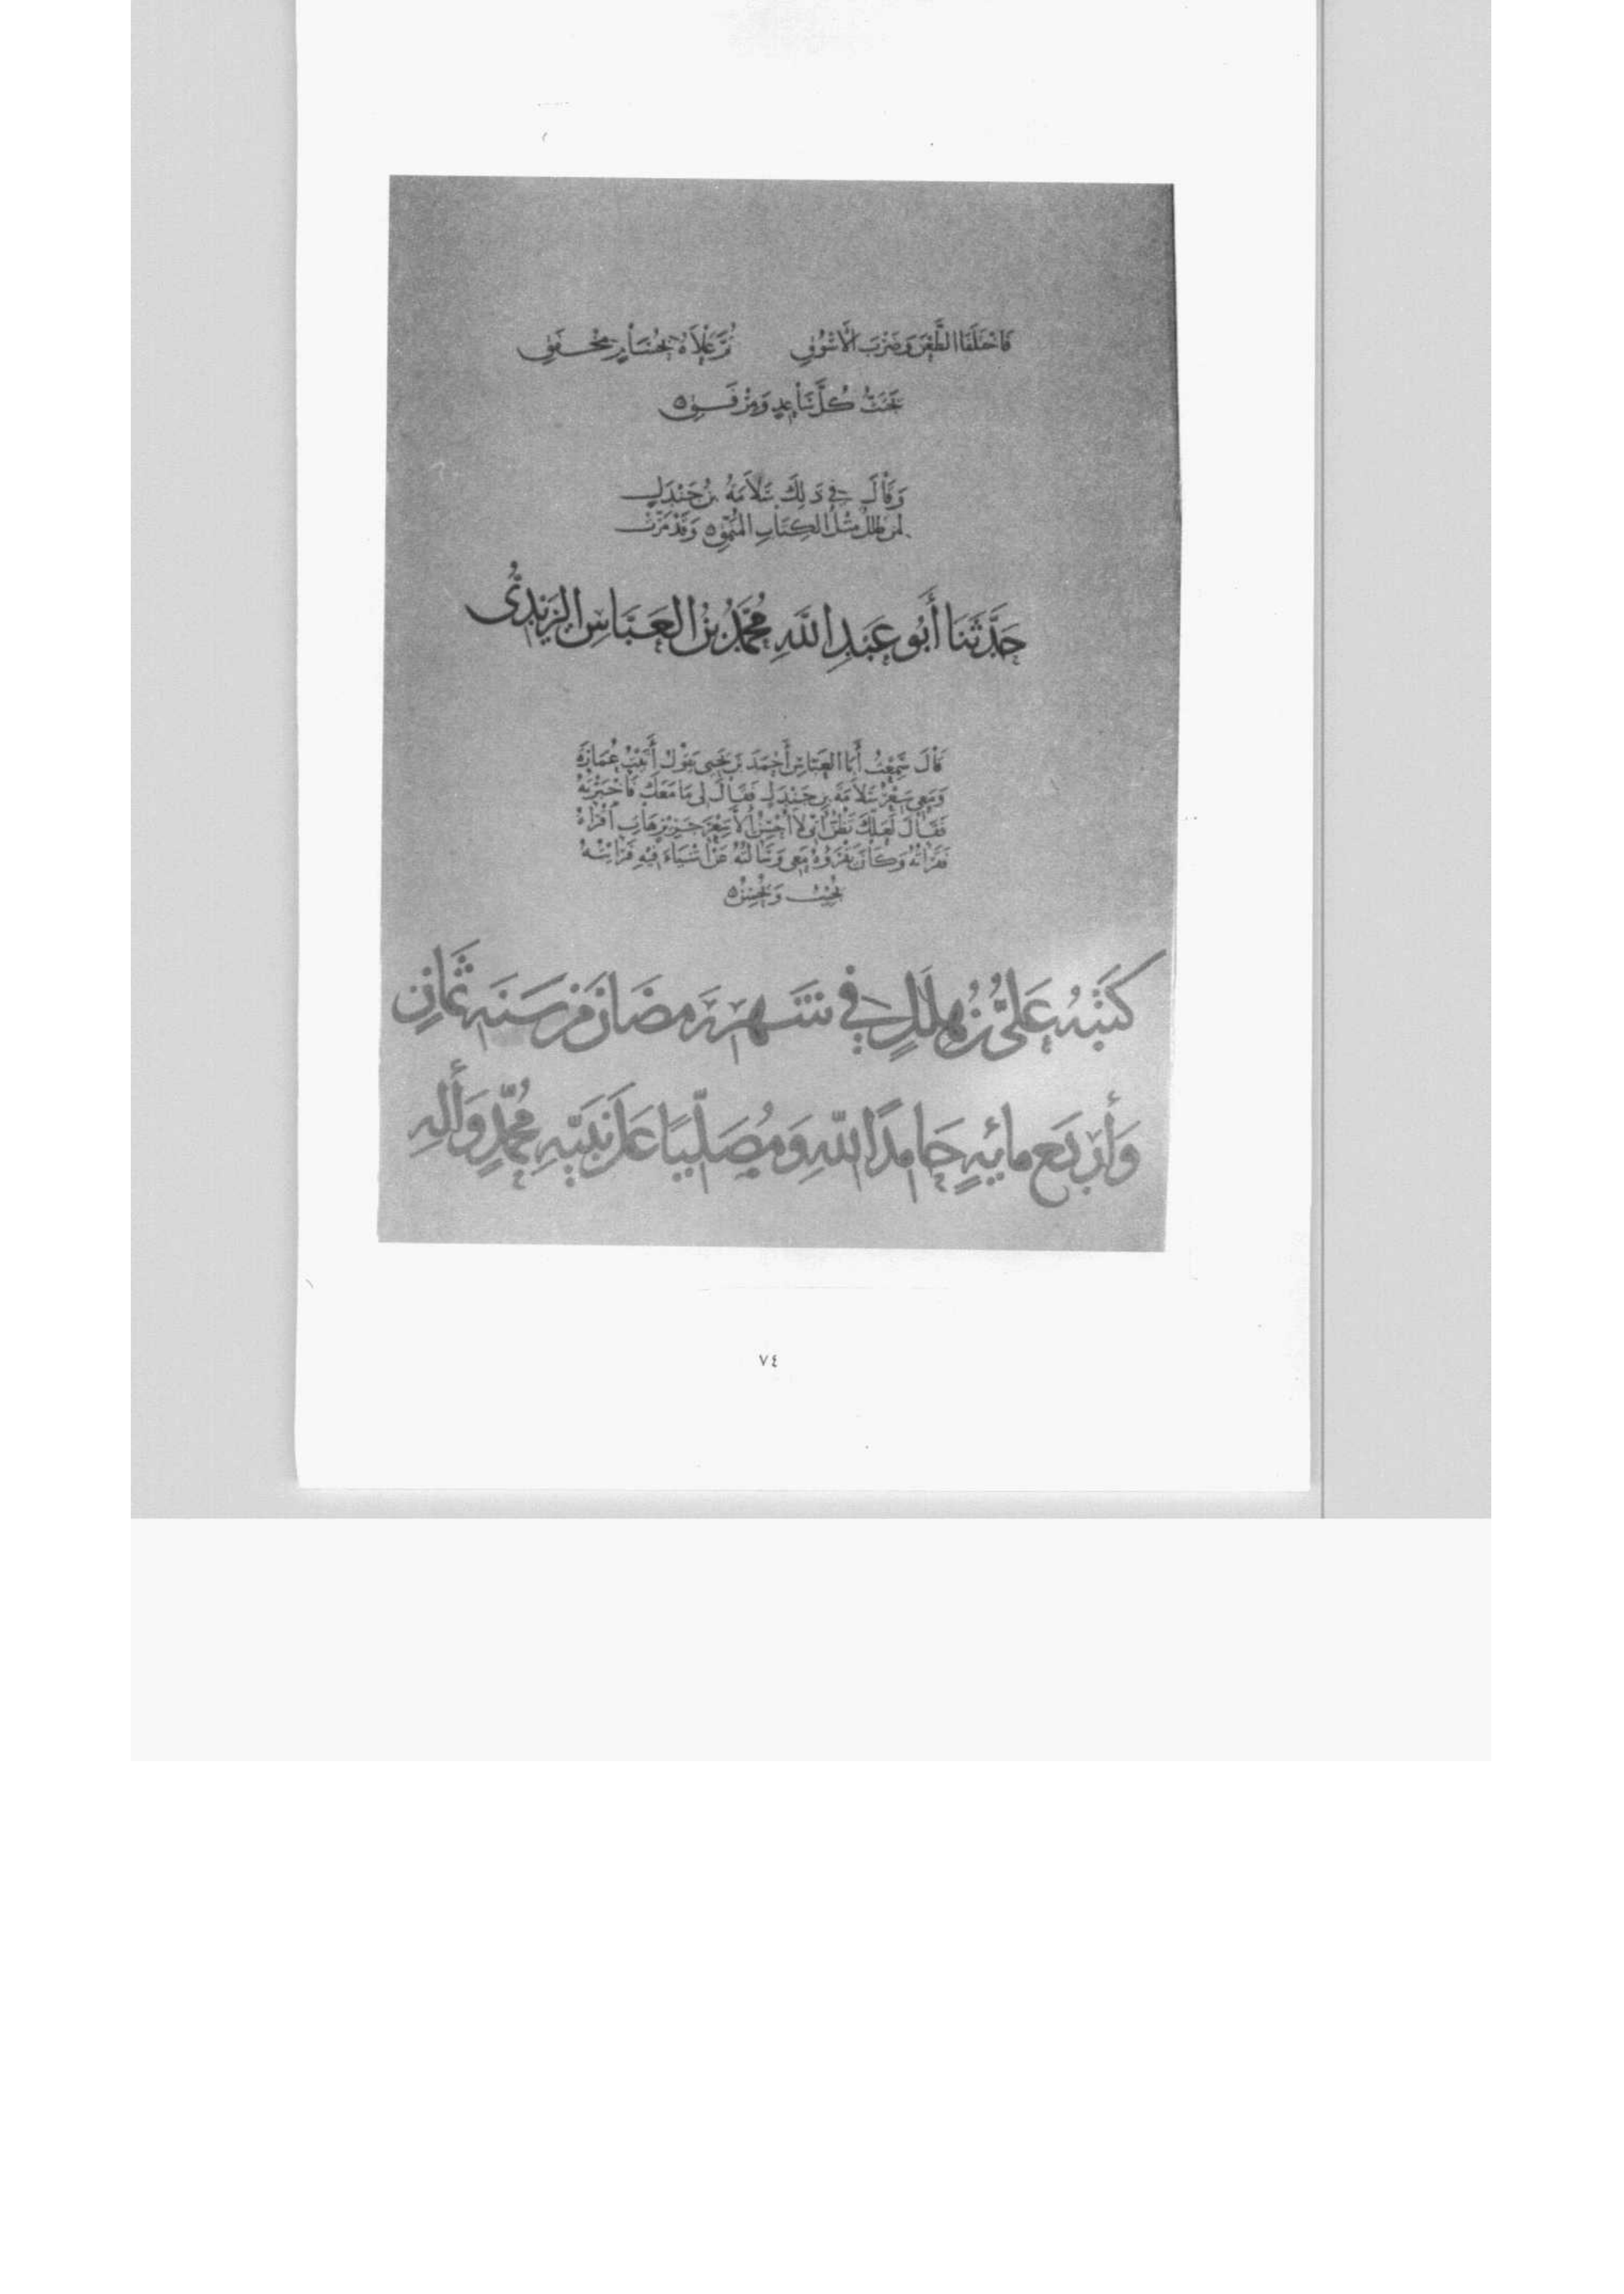 فَاخْتَلَفَا الطَّعْنَ وَضَرْبَ الْأَسْوُقِ ثُمَّ عَلَاهُ بِحُسَامٍ مِخْفَقِ
تَحْتَ كُلَّ سَاعِدٍ وَمِرْفَقِ ه
وَقَالَ فِي ذَلِكَ سَلَامَةُ بْنُ جَنْدَلٍ
لمن طلل مثل الكتاب المنمق ه وقد مرت
حَدَّثَنَا أَبُو عَبْدِ اللَّهِ مُحَمَّدُ بْنُ الْعَبَّاسِ الْيَزِيدِيُّ
قَالَ سَمِعْتُ أَبَا الْعَبَّاسِ أَحْمَدَ بْنَ يَحْيَى يَقُولُ أَتَيْتُ عُمَارَةَ
وَمَعِي شِعْرُ سَلَامَةَ بْنِ جَنْدَلٍ فَقَالَ لِي مَا مَعَكَ فَأَخْبَرْتُهُ
فَقَالَ لَعَلَّكَ تَظُنُّ أَنِّي لَا أُحْسِنُ إِلَّا شِعْرَ جَرِيرٍ هَاتِ اقْرَأْهُ
فَقَرَأْتُهُ وَكَانَ يَقْرَؤُهُ مَعِي وَسَأَلْتُهُ عَنْ أَشْيَاءَ فِيهِ فَرَأَيْتُهُ
يُجِيبُ وَيُحْسِنُ ه
كَتَبَهُ عَلِيُّ بْنُ هِلَلٍ فِي شَهْرِ رَمَضَانَ مِنْ سَنَةِ ثَمَانٍ
وَأَرْبَعِ مِائَةٍ حَامِدًا لِلَّهِ وَمُصَلِّيًا عَلَى نَبِيِّهِ مُحَمَّدٍ وَأَلِهِ
٧٤